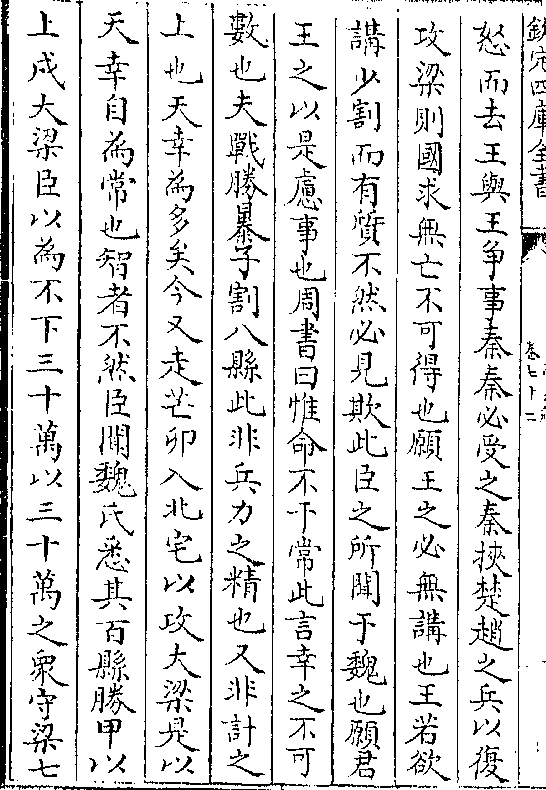 欽定四庫全書
卷七十二
怒而去王與王爭事秦秦必受之秦挾楚趙之兵以復
攻梁則國求無亡不可得也願王之必無講也王若欲
講少割而有質不然必見欺此臣之所聞于魏也願君
王之以是慮事也周書曰惟命不于常此言幸之不可
數也夫戰勝暴子割八縣此非兵力之精也又非計之
上也天幸為多矣今又走芒卯入北宅以攻大梁是以
天幸自為常也智者不然臣聞魏氏悉其百縣勝甲以
上戍大梁臣以為不下三十萬以三十萬之衆守梁七